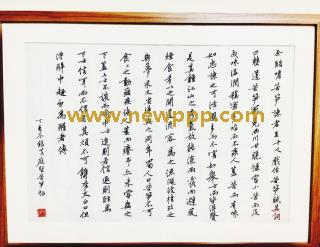 余酷嗜苦笋諫者至十人戲作苦笋賦其詞
曰僰道苦笋冠冕兩川甘脆愜當小苦而反
成味溫潤稹密多啖而不疾人蓋苦而有味
如忠諫之可活國多而不害如舉士而皆得賢
是其鍾江山之秀氣故能深雨露而避風
煙食肴以之開道酒客為之流涎彼桂之
與夢永又安得與之同年蜀人曰苦笋不可
食食之動痼疾使人萎而瘠予亦未嘗與之
下蓋上士不談而喻中士進則若信退則眩焉
下士信耳而不信目其頑不可鐫李太白曰但
得醉中趣勿為醒者傳
丁酉冬錄黃庭堅苦笋賦
www.newppp.com
www.newppp.com
www.newppp.com